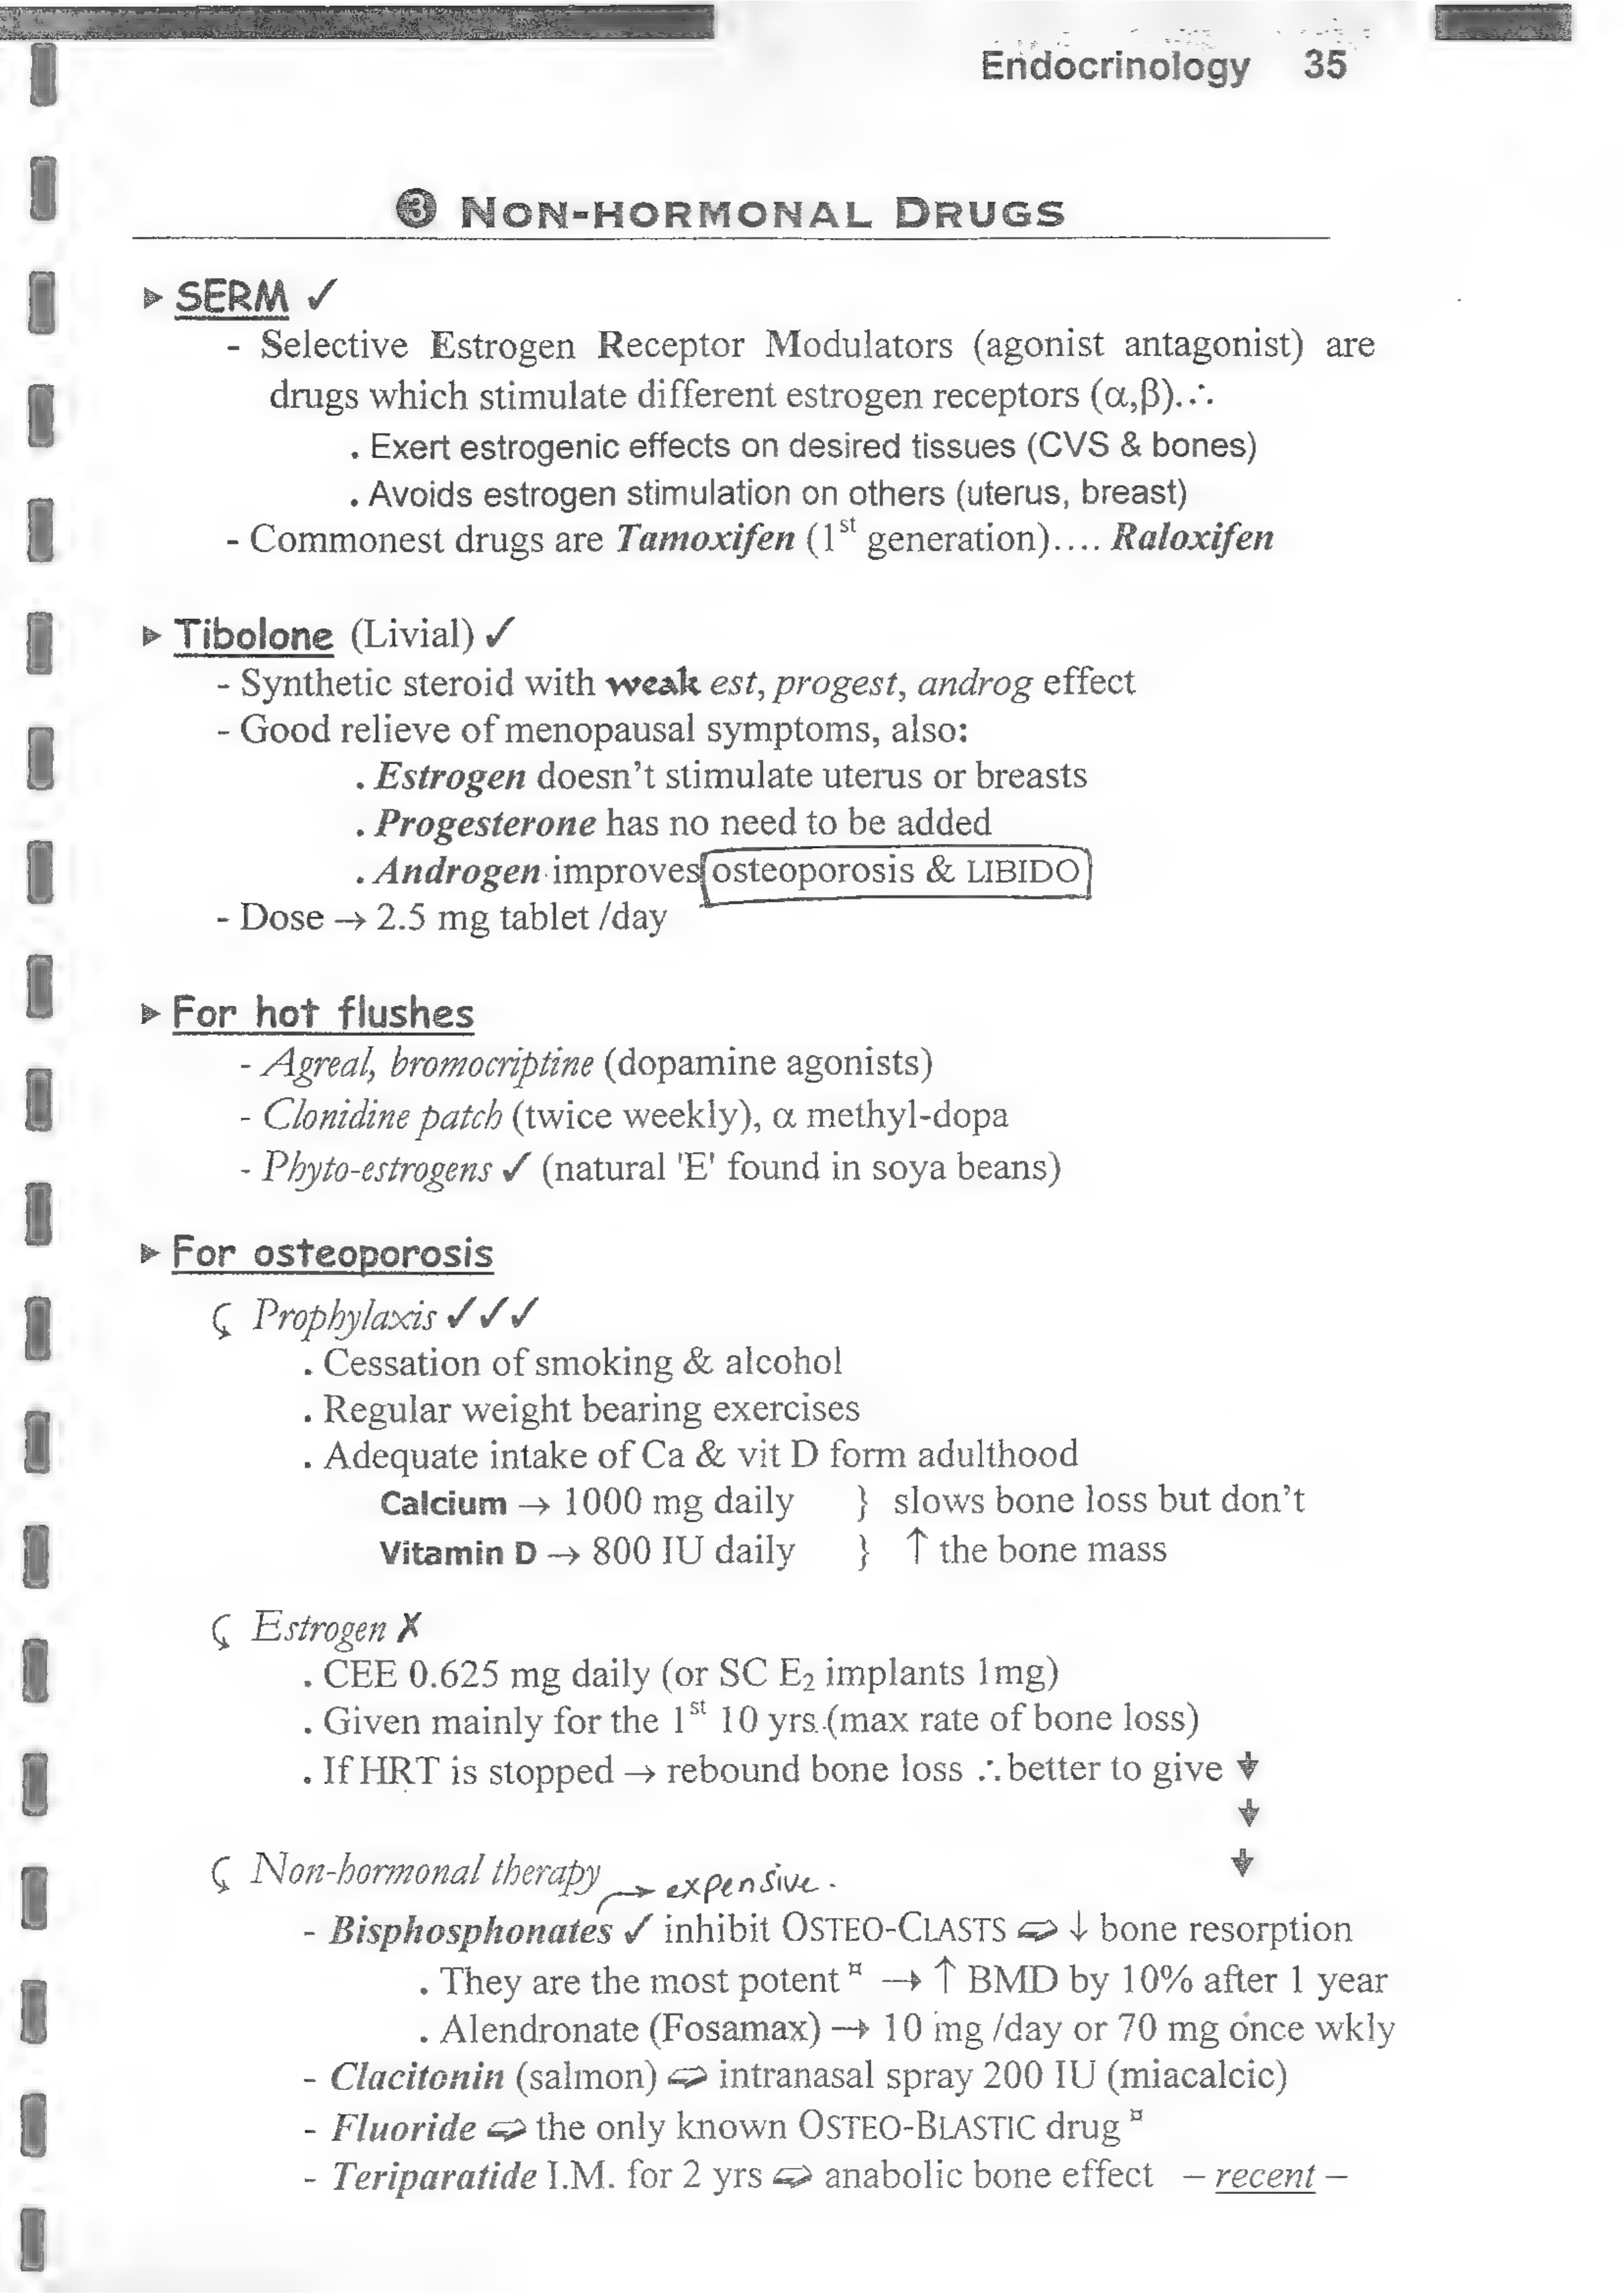 Endocrinology 35
❸ NON-HORMONAL DRUGS
▶ SERM ✓
- Selective Estrogen Receptor Modulators (agonist antagonist) are
drugs which stimulate different estrogen receptors (α,β).∴
. Exert estrogenic effects on desired tissues (CVS & bones)
. Avoids estrogen stimulation on others (uterus, breast)
- Commonest drugs are Tamoxifen (1st generation).... Raloxifen
▶ Tibolone (Livial) ✓
- Synthetic steroid with weak est, progest, androg effect
- Good relieve of menopausal symptoms, also:
. Estrogen doesn't stimulate uterus or breasts
. Progesterone has no need to be added
. Androgen improves osteoporosis & LIBIDO
- Dose → 2.5 mg tablet /day
▶ For hot flushes
- Agreal, bromocriptine (dopamine agonists)
- Clonidine patch (twice weekly), α methyl-dopa
- Phyto-estrogens ✓ (natural 'E' found in soya beans)
▶ For osteoporosis
Prophylaxis ✓✓✓
. Cessation of smoking & alcohol
. Regular weight bearing exercises
. Adequate intake of Ca & vit D form adulthood
Calcium → 1000 mg daily } slows bone loss but don't
Vitamin D → 800 IU daily } ↑ the bone mass
Estrogen ✗
. CEE 0.625 mg daily (or SC E₂ implants 1mg)
. Given mainly for the 1st 10 yrs.(max rate of bone loss)
. If HRT is stopped → rebound bone loss ∴ better to give ↓
↓
↓
Non-hormonal therapy
→ expensive.
- Bisphosphonates ✓ inhibit OSTEO-CLASTS ⇨ ↓ bone resorption
. They are the most potent ¤ → ↑ BMD by 10% after 1 year
. Alendronate (Fosamax) → 10 mg /day or 70 mg once wkly
- Clacitonin (salmon) ⇨ intranasal spray 200 IU (miacalcic)
- Fluoride ⇨ the only known OSTEO-BLASTIC drug ¤
- Teriparatide I.M. for 2 yrs ⇨ anabolic bone effect – recent –